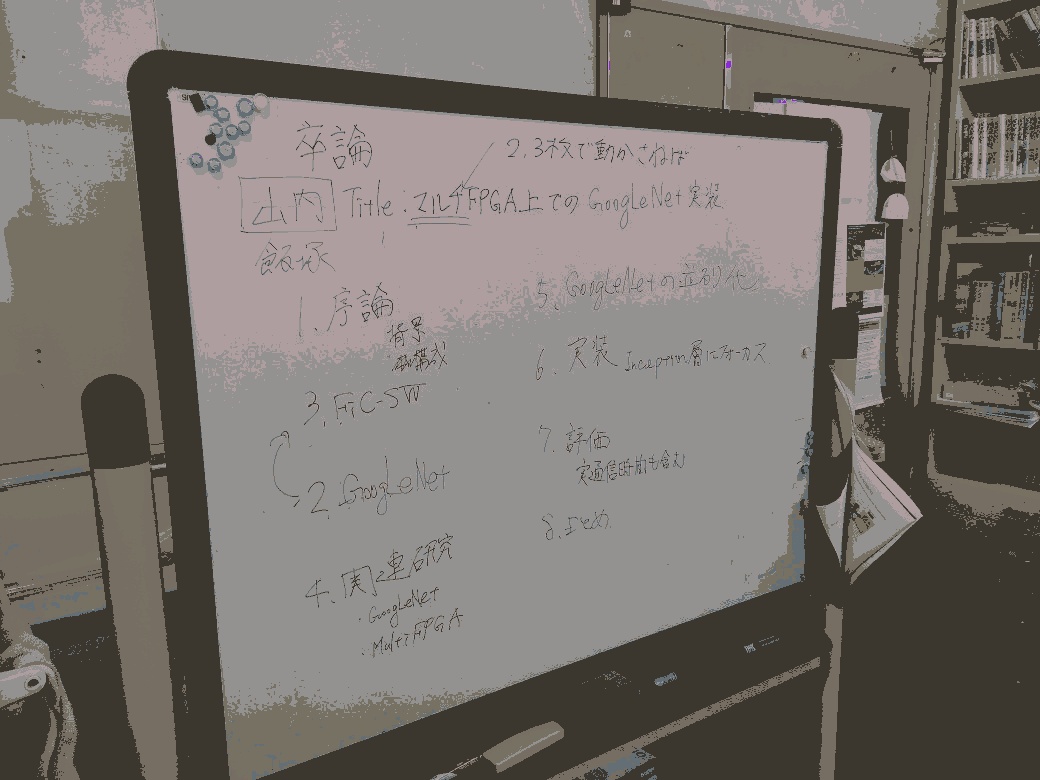 卒論
2,3枚で動かさねば
山内 Title:マルチFPGA上での GoogLeNet 実装
飯塚
1. 序論
背景
構成
3. FiC-SW
2. GoogLeNet
4. 関連研究
・GoogLeNet
・Multi FPGA
5. GoogLeNetの並列化
6. 実装 Inception層にフォーカス
7. 評価
実通信時間も含む
8. まとめ